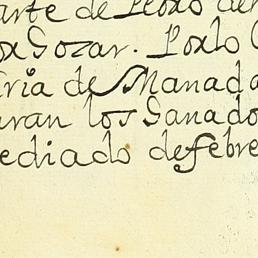 arte de Pedro de
or Gozar. Porlo
ria de Manada
uran los Ganado
ediado defebre